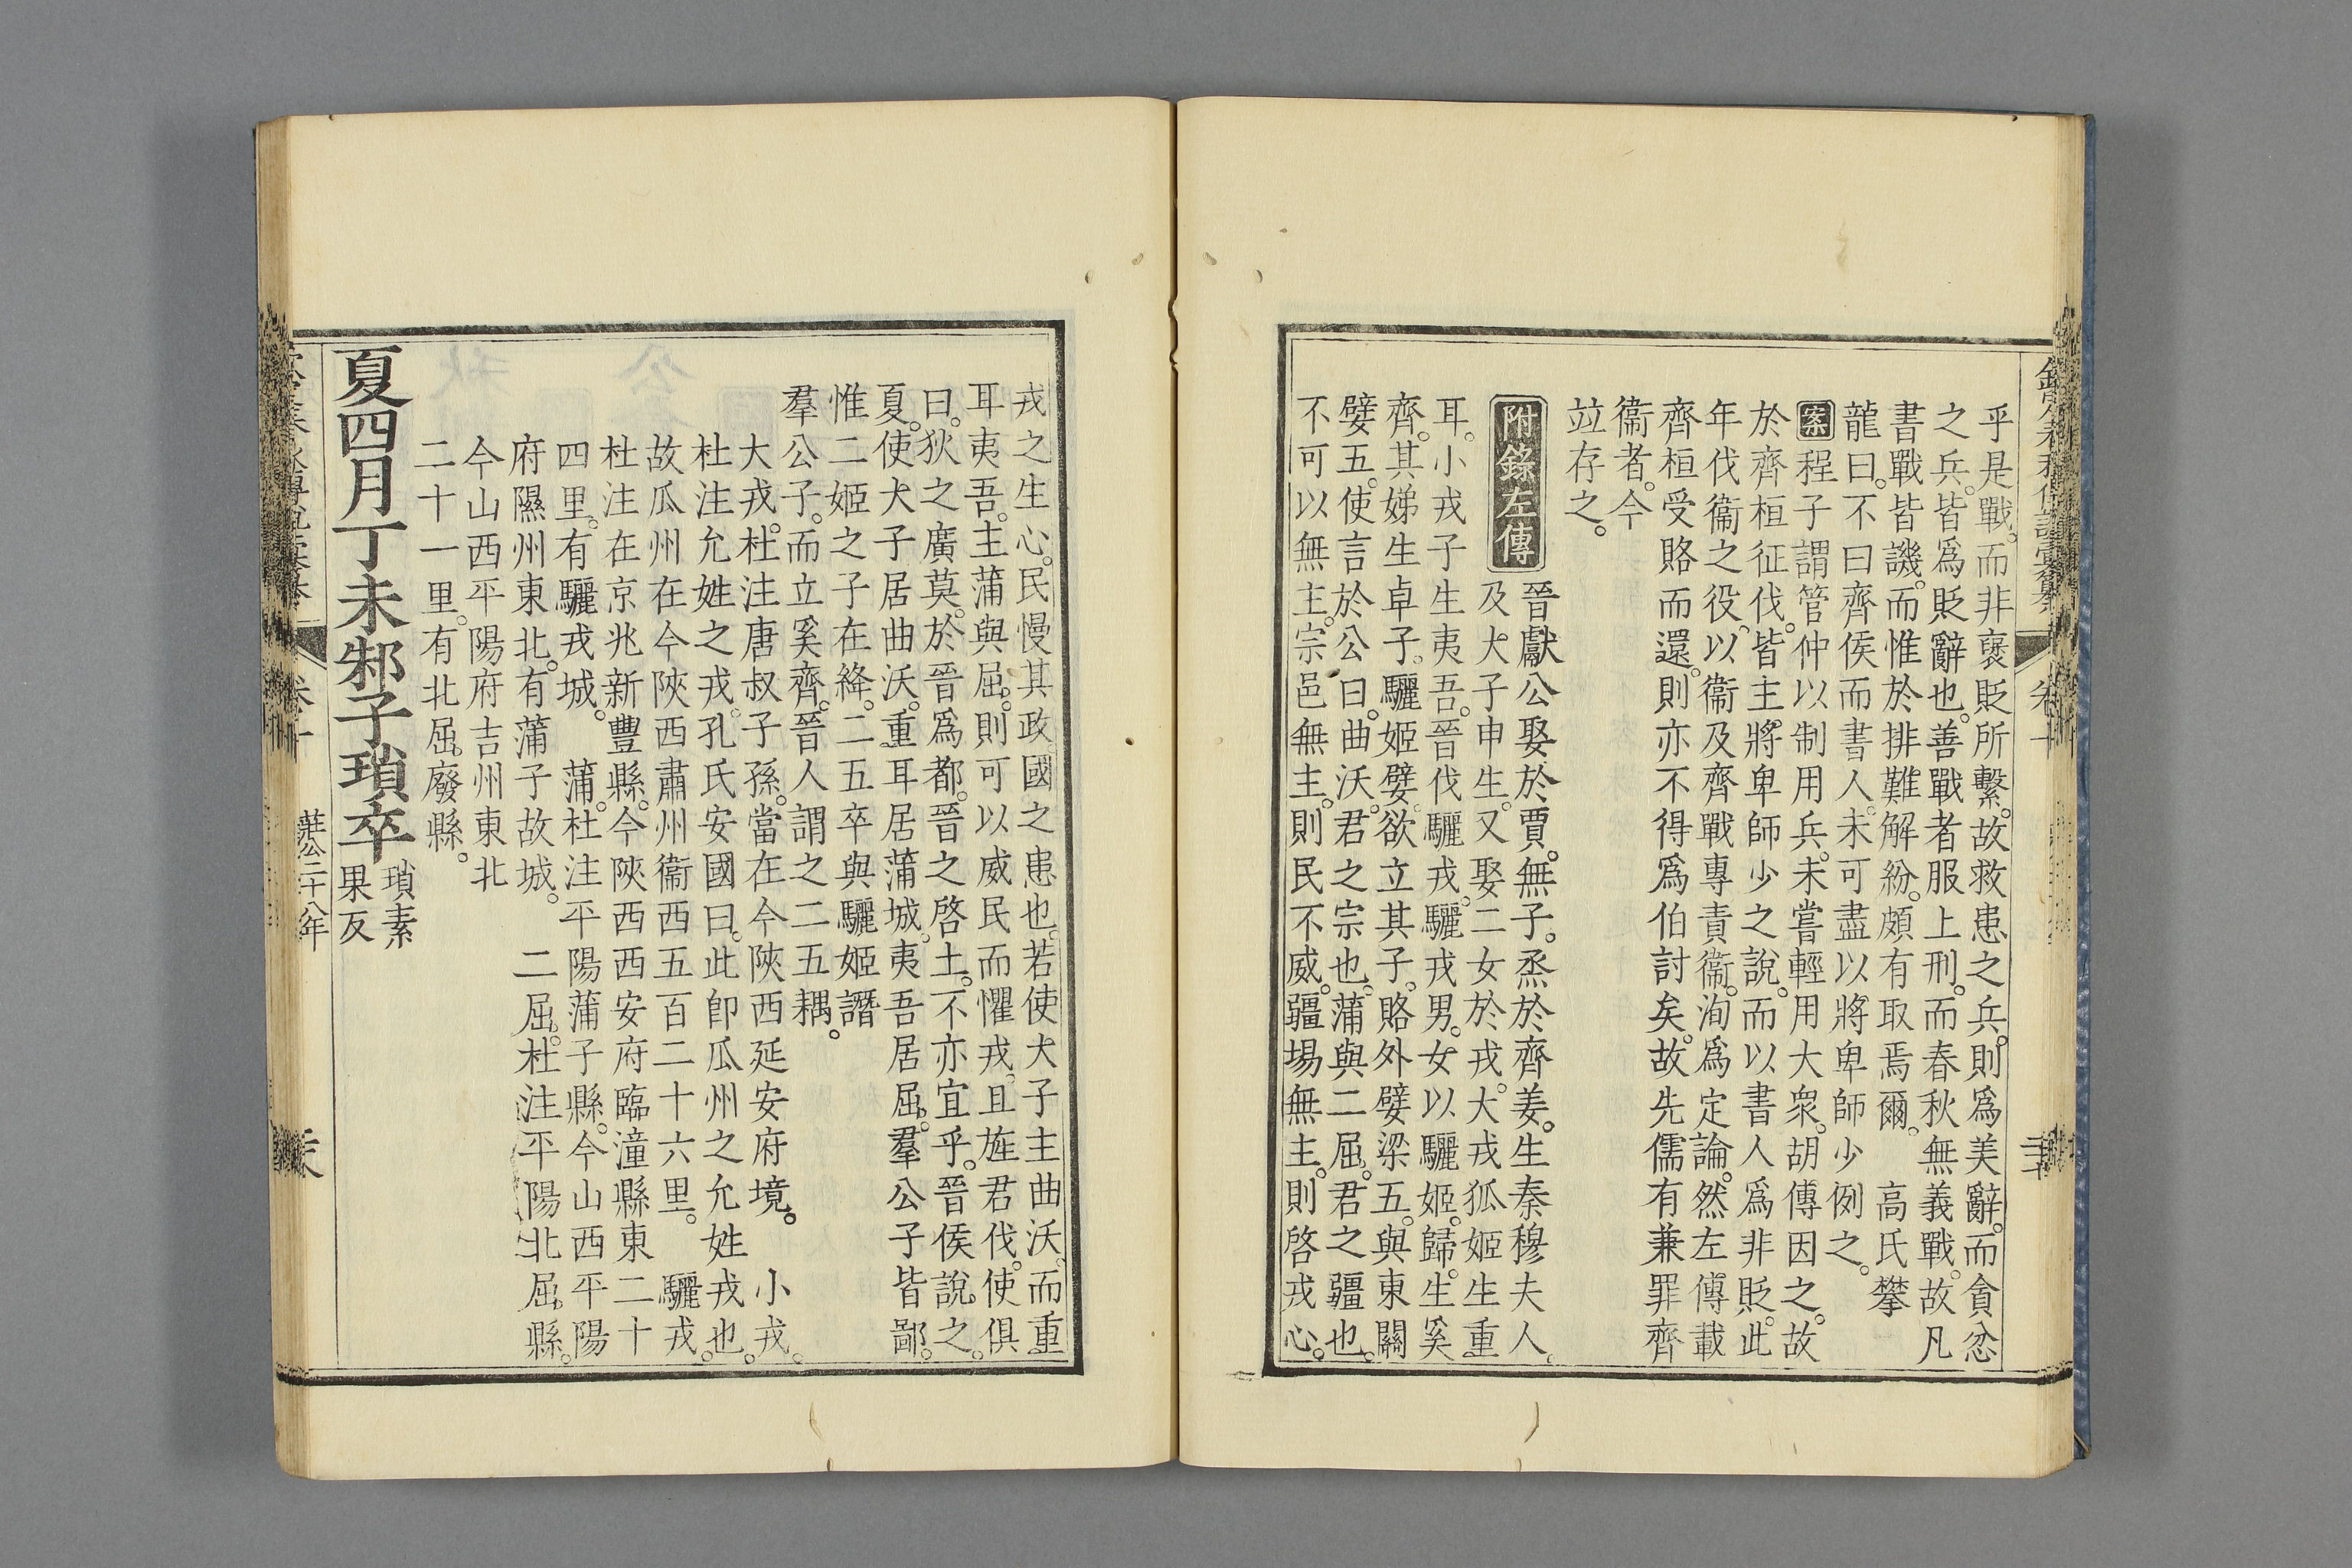 乎是戰。而非褒貶所繫。故救患之兵。則爲美辭。而貪忿
之兵。皆爲貶辭也。善戰者服上刑。而春秋無義戰。故凡
書戰皆譏。而惟於排難解紛。頗有取焉爾。高氏攀
龍曰。不曰齊侯而書人。未可盡以將卑師少例之。
案程子謂管仲以制用兵。未嘗輕用大衆。胡傳因之。故
於齊桓征伐。皆主將卑師少之說。而以書人爲非貶。此
年伐衞之役。以衞及齊戰專責衞。洵爲定論。然左傳載
齊桓受賂而還。則亦不得爲伯討矣。故先儒有兼罪齊
衞者。今
竝存之。
附錄左傳
晉獻公娶於賈。無子。烝於齊姜。生秦穆夫人。
及大子申生。又娶二女於戎。大戎狐姬生重
耳。小戎子生夷吾。晉伐驪戎。驪戎男。女以驪姬。歸。生奚
齊。其娣生卓子。驪姬嬖。欲立其子。賂外嬖梁五。與東關
嬖五。使言於公曰。曲沃。君之宗也。蒲與二屈。君之疆也。
不可以無主。宗邑無主。則民不威。疆場無主。則啓戎心。
戎之生心。民慢其政。國之患也。若使大子主曲沃。而重
耳夷吾。主蒲與屈。則可以威民而懼戎。且旌君伐。使俱
曰。狄之廣莫。於晉爲都。晉之啓土。不亦宜乎。晉侯說之。
夏。使大子居曲沃。重耳居蒲城。夷吾居屈。羣公子皆鄙。
惟二姬之子在絳。二五卒與驪姬譖
羣公子。而立奚齊。晉人謂之二五耦。
大戎。杜注唐叔子孫。當在今陝西延安府境。小戎。
杜注允姓之戎。孔氏安國曰。此卽瓜州之允姓戎也。
故瓜州在今陝西肅州衞西五百二十六里。驪戎。
杜注在京兆新豐縣。今陝西西安府臨潼縣東二十
四里。有驪戎城。蒲。杜注平陽蒲子縣。今山西平陽
府隰州東北。有蒲子故城。二屈。杜注平陽北屈。縣。
今山西平陽府吉州東北
二十一里。有北屈。廢縣。
夏四月丁未邾子瑣卒瑣素
果反
卷十
莊公二十八年